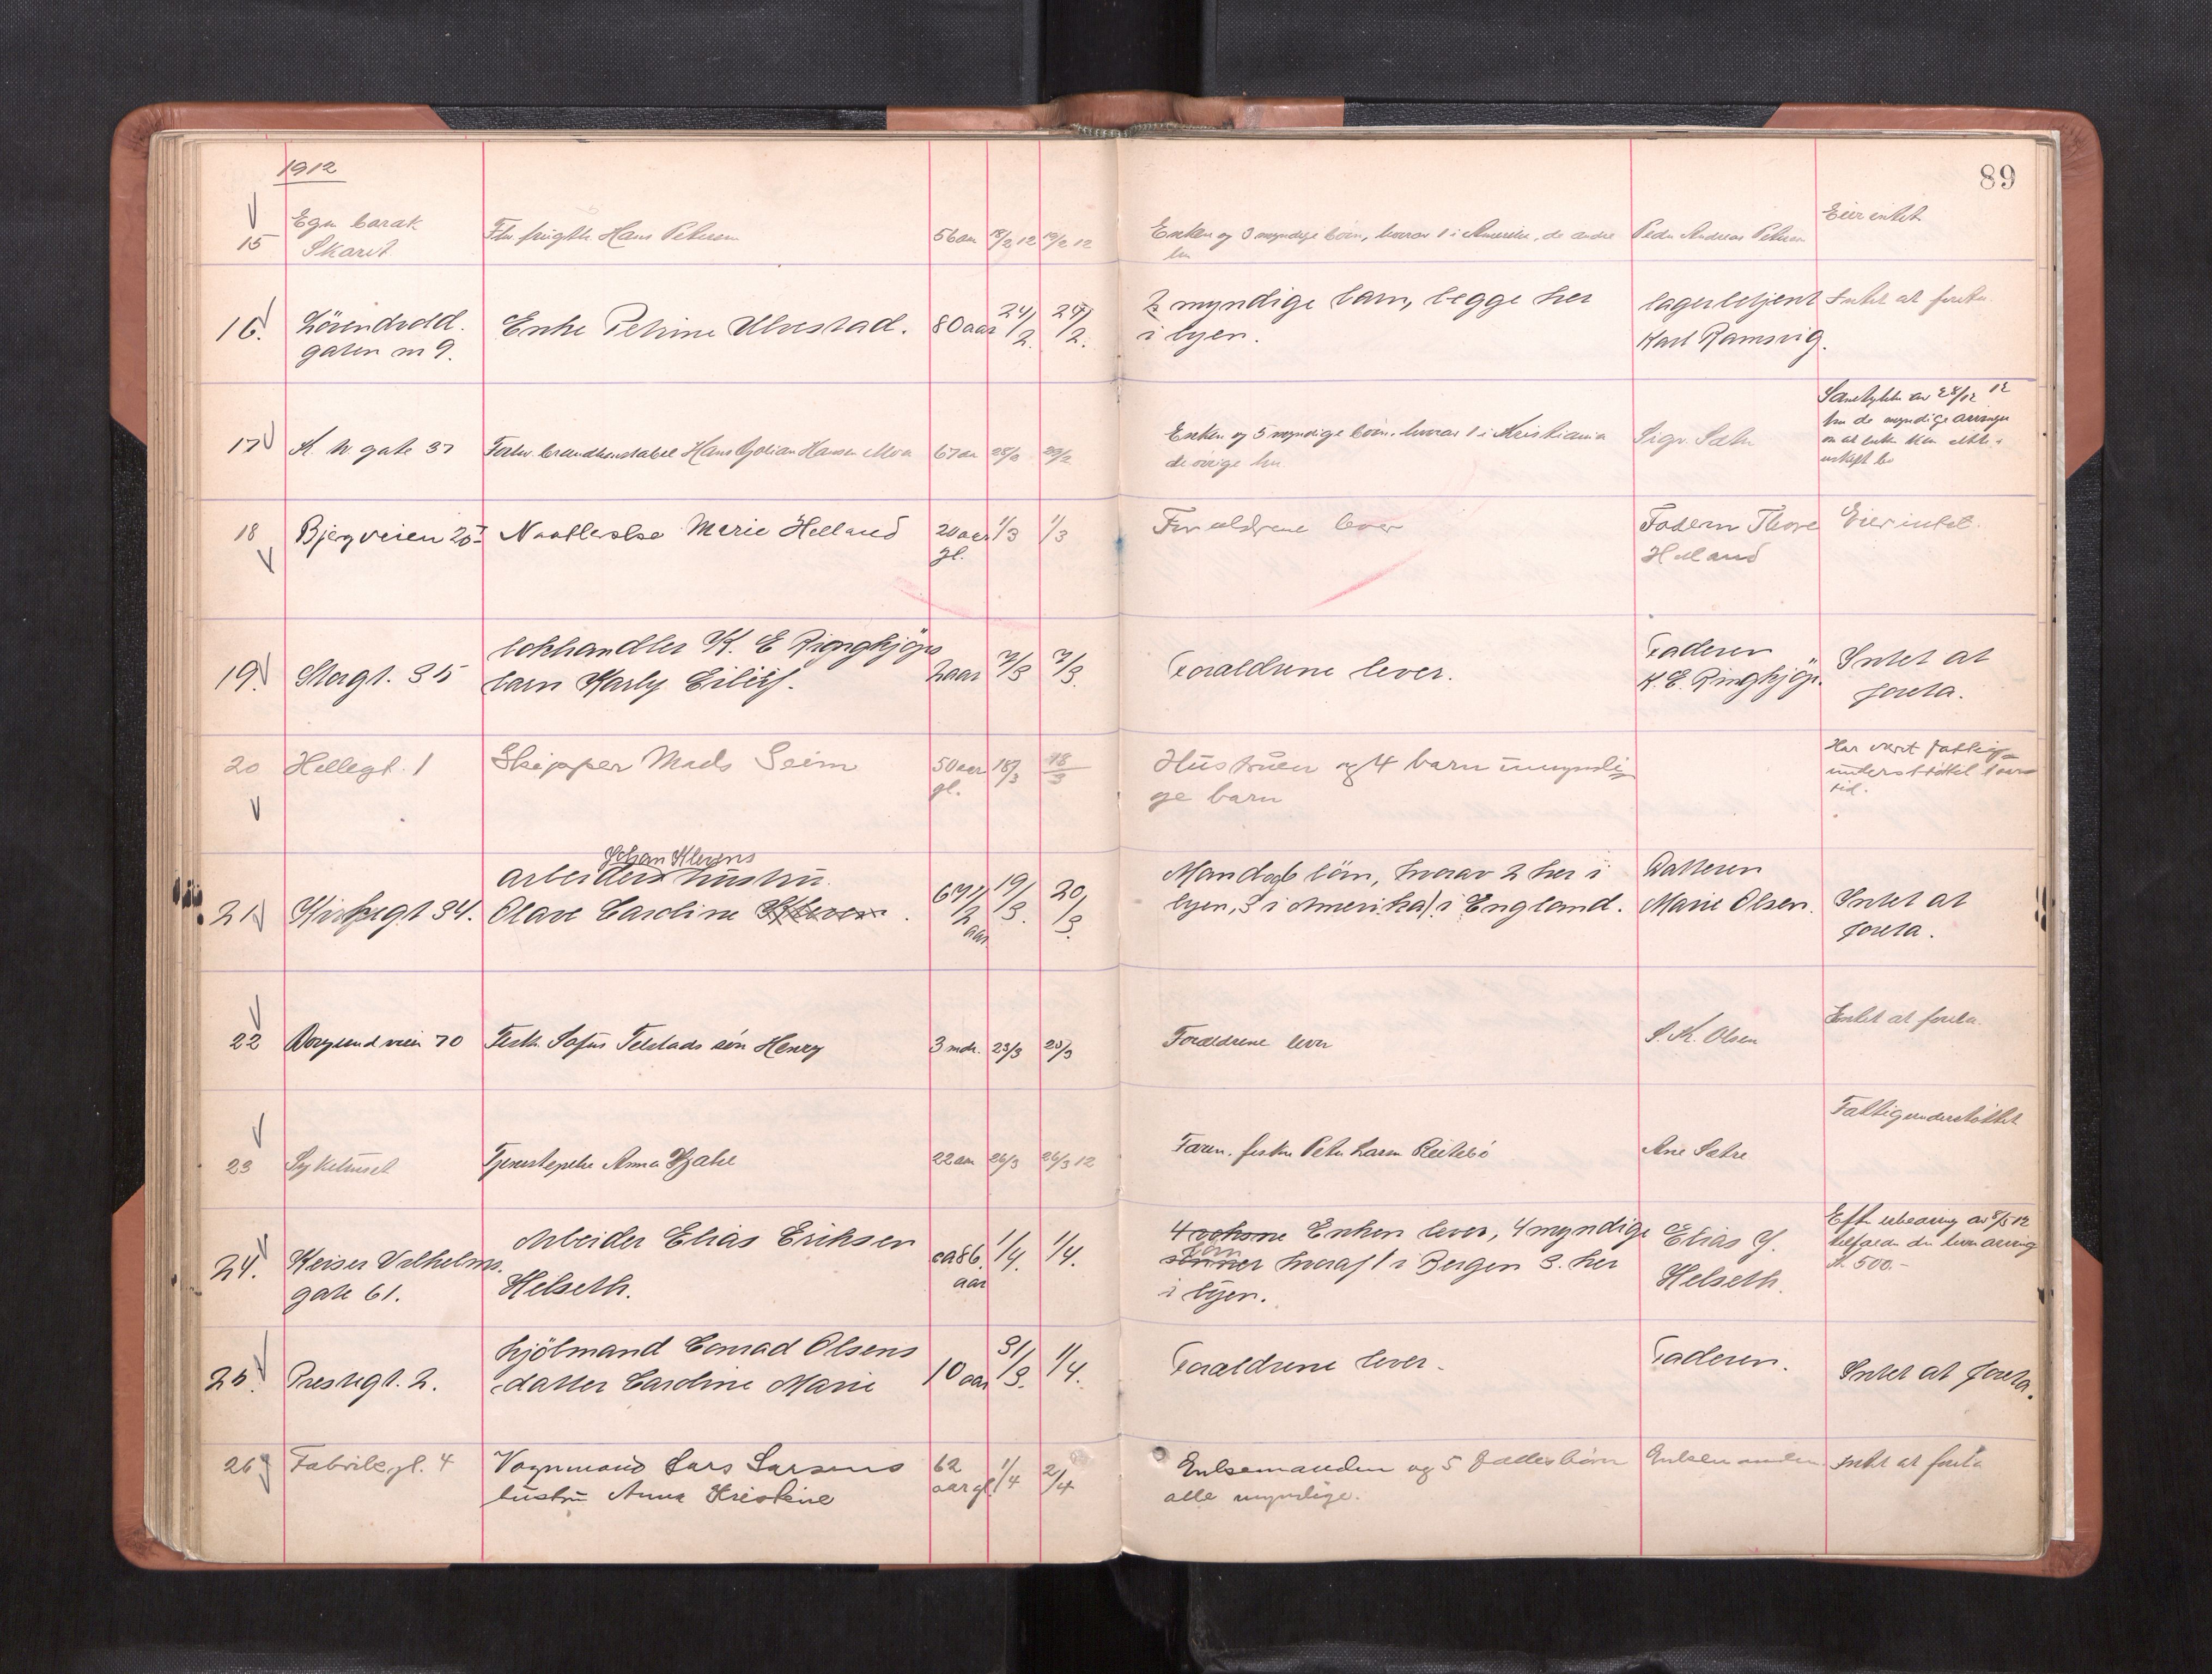 1912
89
15 Egn barak Hans Petersen 56 aar 18/2 12 19/2 12 Enken og 3 myndige börn, hvorav 1 i Amerika, de andre Peder Andreas Petersen Eier intet
Skarit her
16. gaten nr 9. Enke Petrine Ulvestad. 80 aar 24/2. 24/2. 2 myndige barn, begge her lagerbetjent Intet at foreta
i byen. Karl Ramsvig.
17 K. W. gate 37 Forhv. brandkonstabel Hans Hansen Moa 67 aar 28/2 29/2 Enken og 5 myndige börn. hvorav 1 i Kristiania
de övrige her
Samtykke av 28/12 12
de myndige arvinger
18 Bjergveien 20 Marie Helland 20 aar 1/3 1/3 Foraldrene lever Faderen Thore Eier intet.
gl. Helland
19. Storgt. 35 K. E. Ringkjöps 2 aar 7/3 7/3. Foraldrene lever. Faderen Intet at
barn Karly Eilif. K. E. Ringkjöp. foreta.
20 Hellegt. 1 Skipper Mads Seim 50 aar 18/3 18/3 Hustruen og 4 barn umyndi- Har vært fattig-
gl. ge barn understöttet
tid.
Johan Klevens
21 Kirkegt 34. arbeiders hustru. 67 1/2 19/3. 20/3. Mand og 6 börn, hvorav 2 her i Datteren Intet at
Olave Caroline aar byen, 3 i Amerika, 1 i England. Marie Olsen. foreta.
22 Borgundveien 70 Fiskh. Sofus Telstads sön Henry 3 mdr. 23/3 23/3 Foraldrene lever S. K. Olsen Intet at foreta.
23 Sykehuset Tjenestepike Anna 22 aar 26/3 26/3 12 Faren. fisker Peter Larsen Reitebö Ane Sætre Fattigunderstöttet
24. Keiser Vilhelms Arbeider Elias Eriksen ca 86. 1/4. 1/4. 4 voksne Enken lever, 4 myndige Elias G.
gate 61. Helseth. aar sönner börn hvoraf 1 i Bergen 3. her Helseth.
i byen.
kr. 500.-
25. Prestegt. 2. Hjölmand Conrad Olsens 10 aar 31/3. 1/4. Foraldrene lever. Faderen. Intet at foreta.
datter Caroline Marie
26 Fabrikgt. 4 Vognmand Lars Larsens 62 1/4 2/4 Enkemanden og 5 fælles börn Enkemanden Intet at foreta
hustru Anna Kristine aar gl. alle myndige.